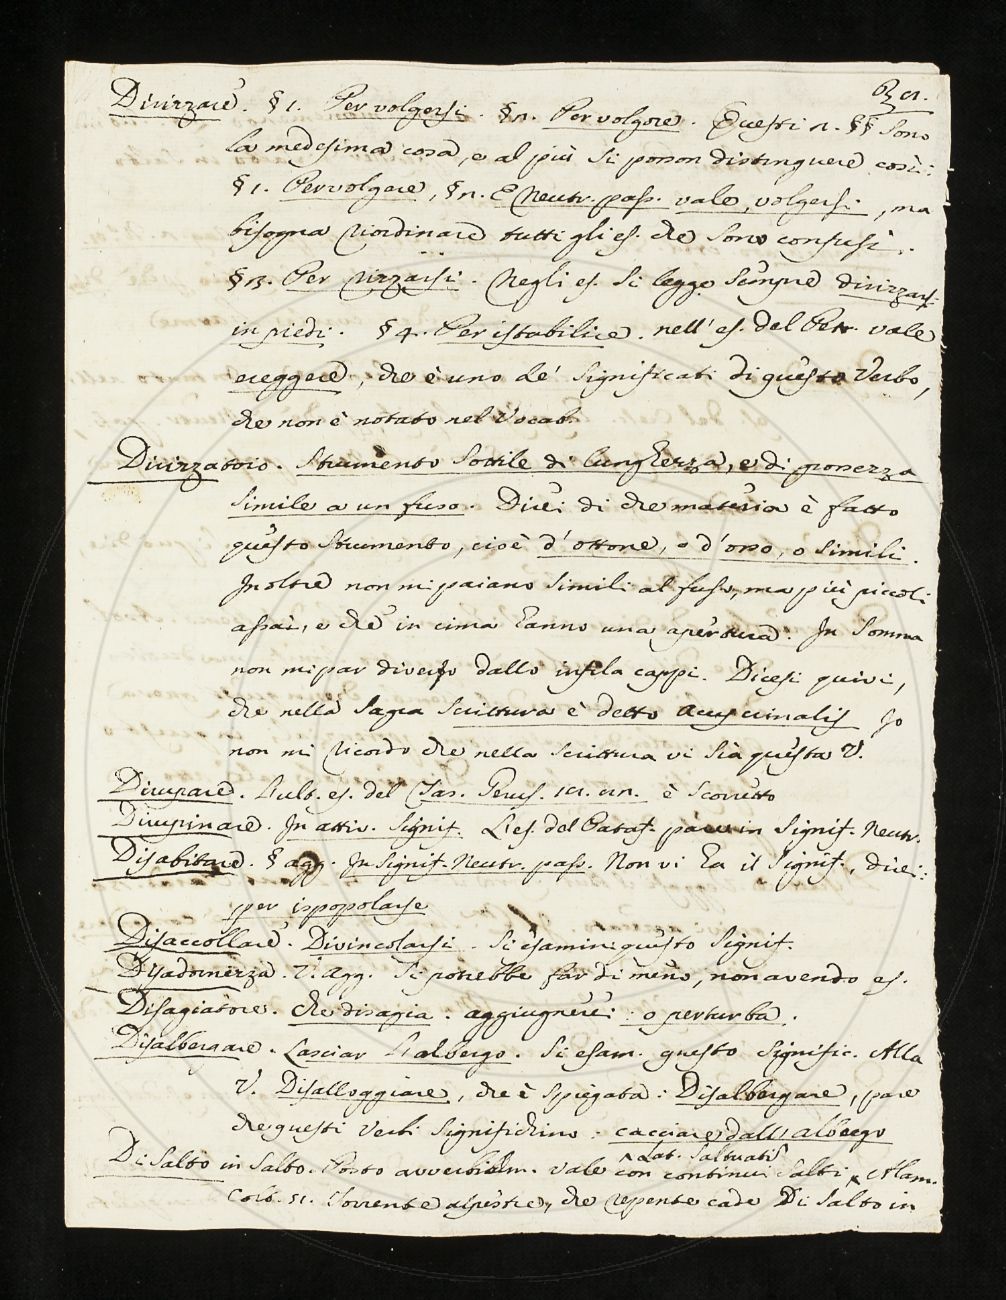 Dirizzare. § 1. Per volgersi. § 2. Per volgere. Questi 2. §§ sono
la medesima cosa, e al più si posson distinguere così:
§ 1. Per volgere, § 2. E Neutr. pass. vale, volgersi, ma
bisogna riordinare tutti gli es. che sono confusi.
§ 3. Per rizzarsi. Negli es. si legge sempre dirizzarsi
in piedi. § 4. Per istabilire. nell' es. del Petr. vale
ereggere, che è uno de' significati di questo Verbo,
che non è notato nel Vocab.
Dirizzatoio. Strumento sottile di lunghezza, e di grossezza
simile a un fuso. Direi di che materia è fatto
questo strumento, cioè d'ottone, o d'osso, o simili.
Inoltre non mi paiano simili al fuso, ma più piccoli
assai, e che in cima hanno una apertura. In somma
non mi par diverso dallo infila cappi. Dicesi quivi,
che nella Sagra Scrittura è detto acus crinalis Io
non mi ricordo che nella scrittura vi sia questa V.
Dirupare. L'ult. es. del è scorretto
Dirupinare. In attiv. signif. L'es. del Pataf. pare in signif. Neutr.
Disabitare. § agg. In signif. Neutr. pass. Non vi ha il signif., direi:
per ispopolarse
Disaccollare. Divincolarsi. Si esamini questo signif.
Disadornezza. V. agg. Si potrebbe far di meno, non avendo es.
Disagiatore. che disagia. aggiugnerei: o perturba.
Disalbergare. Lasciar l'albergo. Si esam. questo signific. Alla
V. Disalloggiare, che è spiegata: Disalbergare, pare
che questi Verbi significhino: cacciare dall'albergo
Di salto in salto. Posto avverbialm. vale con continui salti,
^ Lat. Saltuatim ^ Alam.
Colt. 51. Torrente alpestre, che repente cade Di salto in